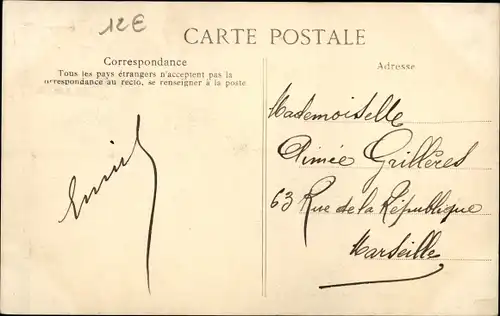 12€
CARTE POSTALE
Correspondance
Tous les pays étrangers n'acceptent pas la
correspondance au recto, se renseigner à la poste
Adresse
Mademoiselle
Aimée Grillères
63 Rue de la République
Marseille
Emile